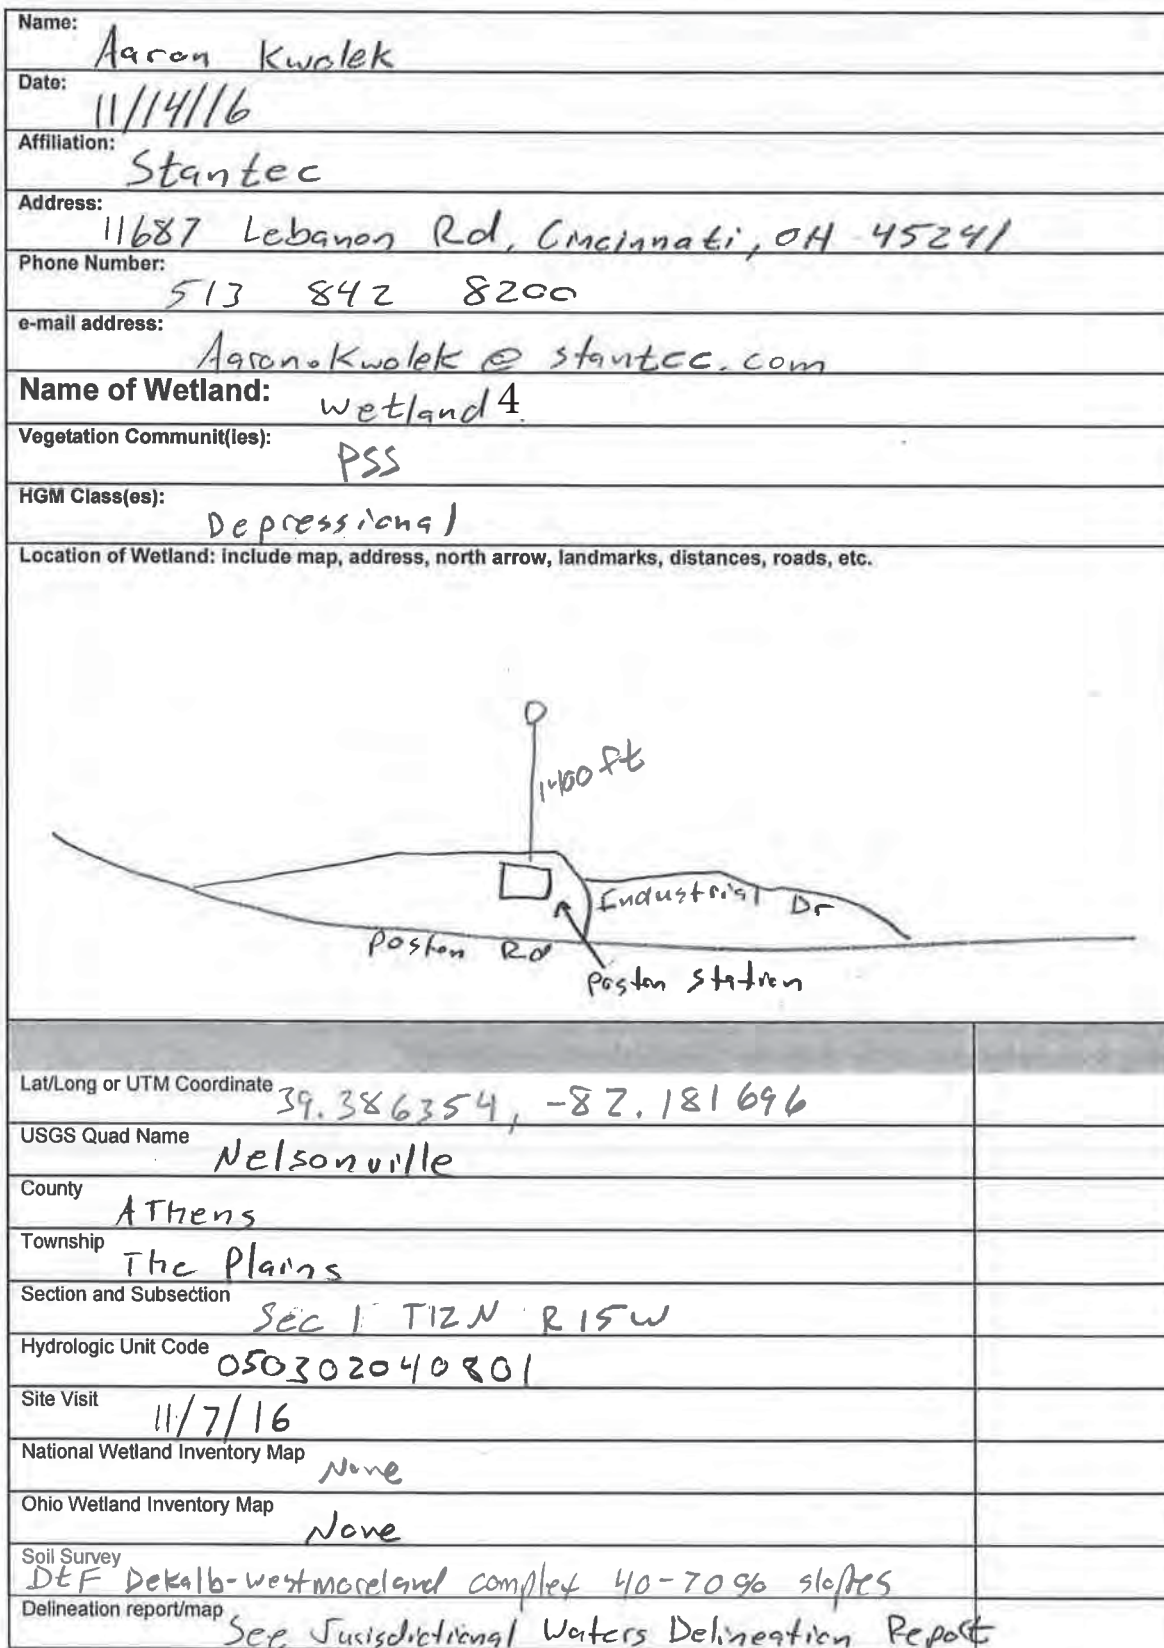 Name:
Aaron Kwolek
Date:
11/14/16
Affiliation:
Stantec
Address:
11687 Lebanon Rd, Cincinnati, OH 45241
Phone Number:
513 842 8200
e-mail address:
Aaron.Kwolek @ stantec.com
Name of Wetland:
Wetland 4
Vegetation Communit(ies):
PSS
HGM Class(es):
Depressional
Location of Wetland: include map, address, north arrow, landmarks, distances, roads, etc.
ft
Industrial Dr
Poston Rd
Poston Station
Lat/Long or UTM Coordinate
39.386354, -82.181696
USGS Quad Name
Nelsonville
County
AThens
Township
The Plains
Section and Subsection
Sec 1 T12N R15W
Hydrologic Unit Code
050302040801
Site Visit
11/7/16
National Wetland Inventory Map
None
Ohio Wetland Inventory Map
None
Soil Survey
DtF Dekalb-westmoreland complex 40-70% slopes
Delineation report/map
See Jurisdictional Waters Delineation Report